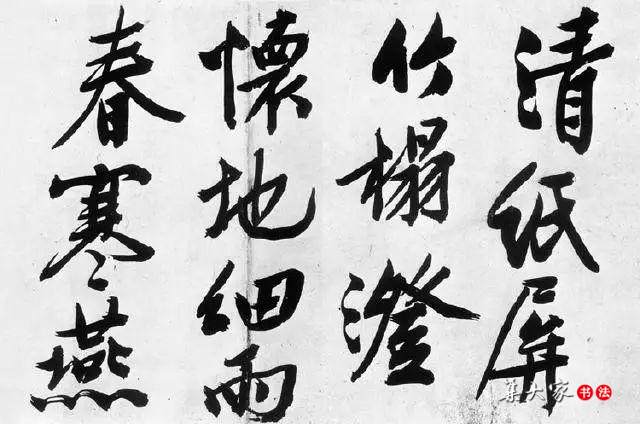 清纸屏
竹榻澄
懐地细雨
春寒燕
集大家书法